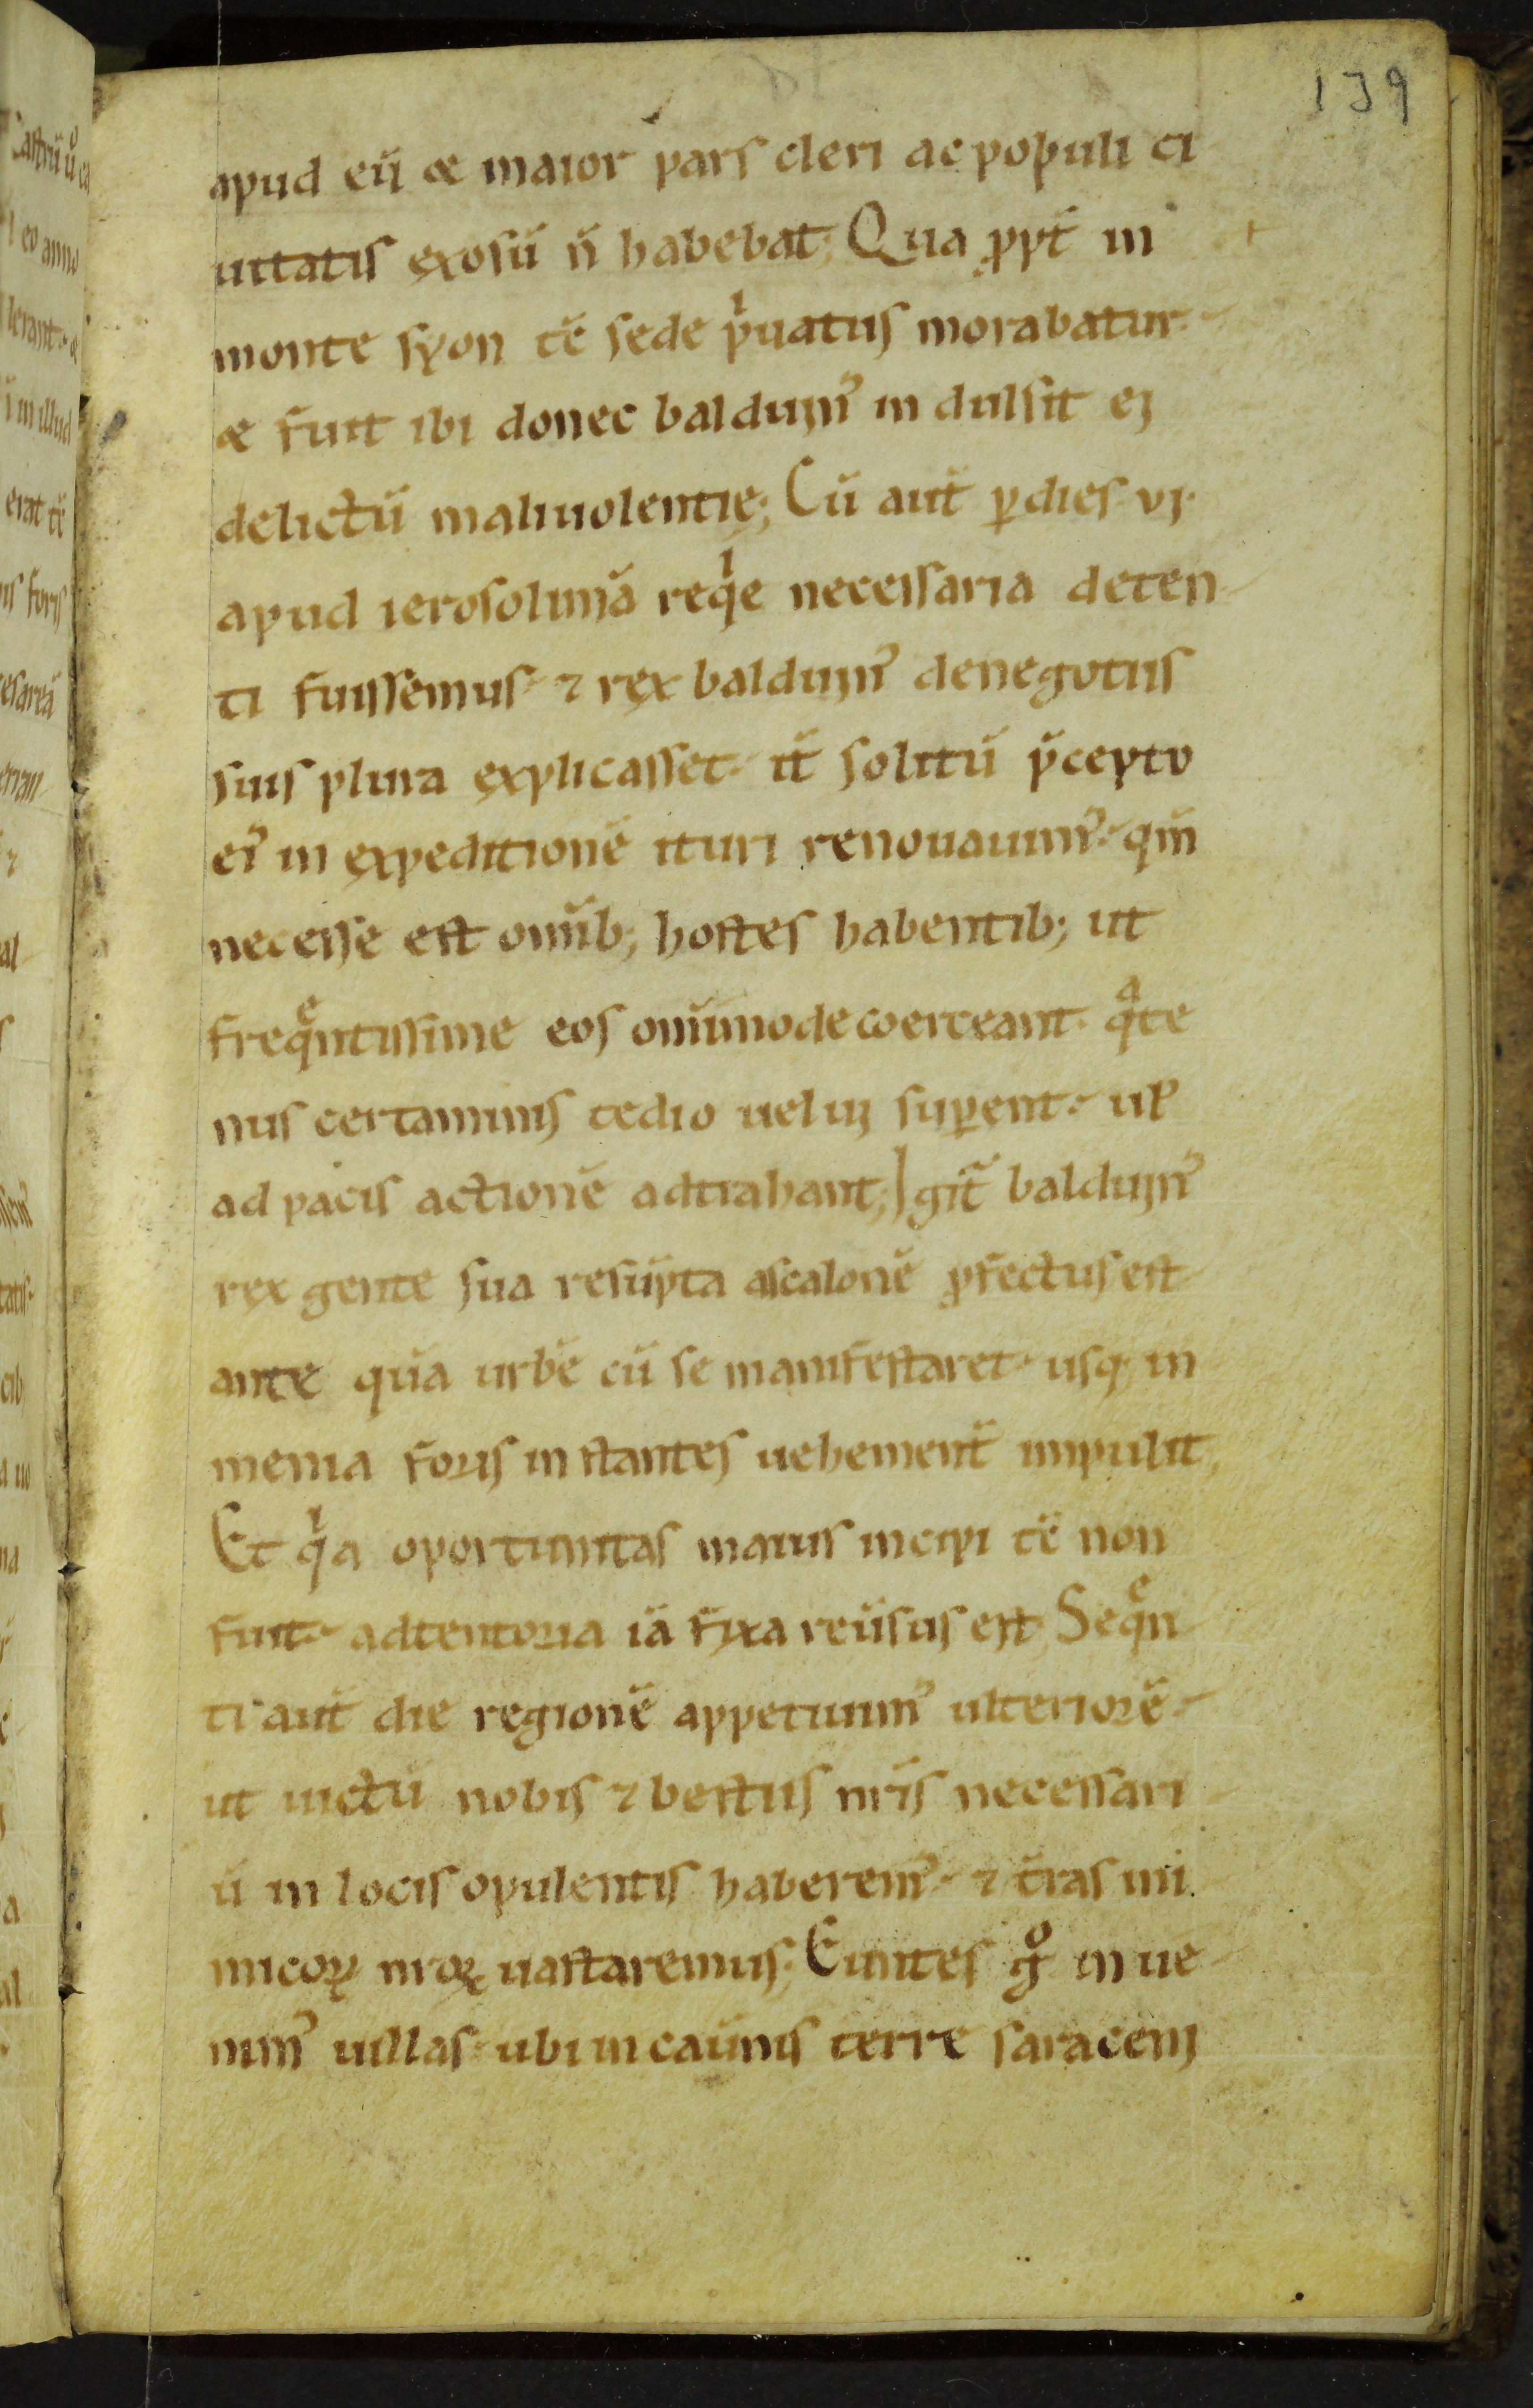 139
apud eū & maior pars cleri ac populi ci
uitatis exosū n̄ habebat; Qua ꝓpt̄ in
monte syon tc̄ sede pͥuatus morabatur.
& fuit ibi donec balduinꝰ in dulsit ei
delictū maliuolentię; Cū aut̄ ꝑdies .vi.
apud ierosolimā reqͥe necessaria deten
ti fuissemus. ⁊ rex balduinꝰ denegotiis
suis plura explicasset. it̄ solitū p̄cepto
eiꝰ in expeditionē ituri renouauimꝰ. qm̄
necesse est om̄ib; hostes habentib; ut
freqͤntissime eos om̄imode coerceant. qͣte
nus certaminis tedio uel ui suꝑent. ul̄
ad pacis actionē adtrahant; Igit̄ balduinꝰ
rex gente sua resūpta ascalonē ꝓfectus est
ante quā urbē cū se manifestaret. usq; in
menia foris in stantes uehement̄ impulit,
Et qͥa oportunitas maius incipi tc̄ non
fuit. adtentoria iā fixa reūsus est; Seqͤn
ti aut̄ die regionē appetiuimꝰ ulteriorē.
ut uictū nobis ⁊ bestiis nr̄is necessari
ū in locis opulentis haberemꝰ. ⁊ t̄ras ini
micoꝝ nr̄oꝝ uastaremus; Euntes gͦ in ue
nimꝰ uillas. ubi in cau̅nis terre saraceni